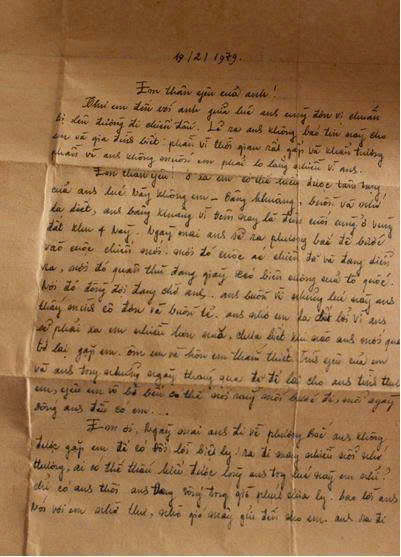 19/2/1979.
Em thân yêu của anh!
Thư em đến với anh giữa lúc anh cùng đơn vị chuẩn
bị lên đường đi chiến đấu. Lẽ ra anh không báo tin này cho
em và gia đình biết phần vì thời gian rất gấp và khẩn trương
phần vì anh không muốn em phải lo lắng nhiều vì anh.
Em thân yêu! ở xa em có thể hiểu được tâm trạng
của anh lúc này không em - Bâng khuâng, buồn và nhớ
da diết, anh bâng khuâng vì đêm nay là đêm cuối cùng ở vùng
đất khu 4 này. Ngày mai anh sẽ ra phương bắc để bước
vào cuộc chiến mới. nơi đó cuộc ác chiến đã và đang diễn
ra, nơi đó quân thù đang giày xéo biên cương của tổ quốc.
Nơi đó đồng đội đang chờ anh. anh buồn vì những lúc này anh
thấy mình cô đơn và buồn tẻ. anh nhớ em da diết bởi vì anh
sẽ phải xa em nhiều hơn nữa, chưa biết khi nào anh mới quay
trở lại gặp em. ôm em và hôn em tha thiết. Tình yêu của em
với anh trong những ngày tháng qua đã để lại cho anh tình thương
em, yêu em vô bờ bến có thể nói rằng mỗi bước đi, mỗi ngày
sống anh đều có em...
Em ơi, Ngày mai anh đi về phương bắc anh không
được gặp em để có đôi lời biệt ly. ra đi mang nhiều nỗi nhớ
thương, ai có thể thấu hiểu được lòng anh trong lúc này em nhỉ?
chỉ có anh thôi anh đang sống trong giờ phút chia ly. bao lời anh
nói với em nhờ thư, nhờ gió mây gửi đến cho em. anh ra đi